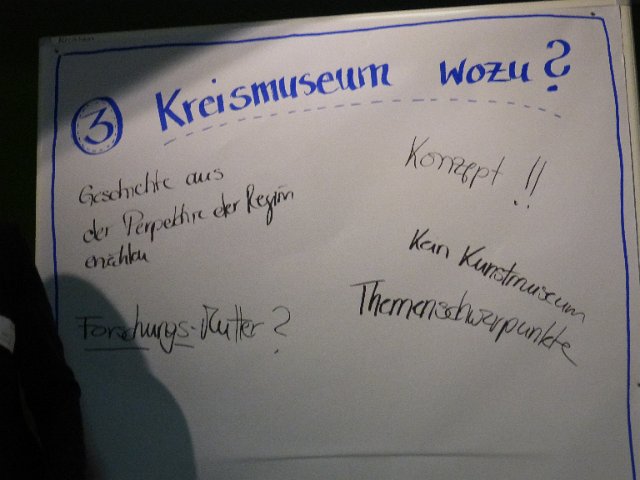 ③ Kreismuseum wozu?
Geschichte aus
der Perpektive der Region
erzählen
Forschungs-Mutter?
Konzept!!
Kein Kunstmuseum
Themenschwerpunkte